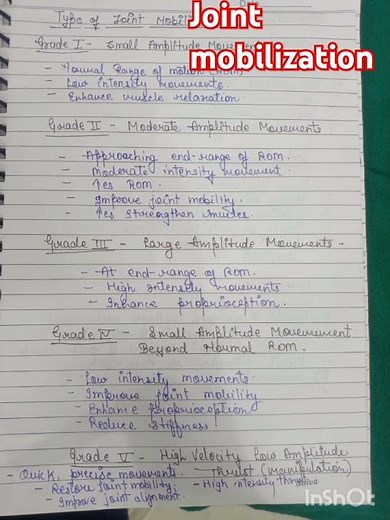 Joint
mobilization
Type of Joint Mobili
Grade I - Small Amplitude Movemen
- Normal Range of motion (ROM)
- Low intensity movements.
- Enhance muscle relaxation
Grade II - Moderate Amplitude Movements
- Approaching end-range of ROM.
- Moderate intensity movement
- ↑es ROM.
- Improve joint mobility.
- ↑es strengthen muscles
Grade III - Large Amplitude Movements -
- At end-range of ROM.
- High Intensity movements
- Enhance proprioception.
Grade IV - Small Amplitude Movement
Beyond Normal ROM.
- Low intensity movements.
- Improve joint mobility
- Enhance proprioception
- Reduce Stiffness
Grade V - High Velocity Low Amplitude
Thrust (manipulation)
- Quick, precise movements
- High intensity
- Restore joint mobility.
- Improve joint alignment.
InShOt